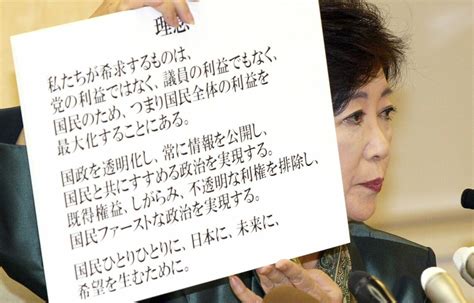 理念
私たちが希求するものは、
党の利益ではなく、議員の利益でもなく、
国民のため、つまり国民全体の利益を
最大化することにある。
国政を透明化し、常に情報を公開し、
国民と共にすすめる政治を実現する。
既得権益、しがらみ、不透明な利権を排除し、
国民ファーストな政治を実現する。
国民ひとりひとりに、日本に、未来に、
希望を生むために。